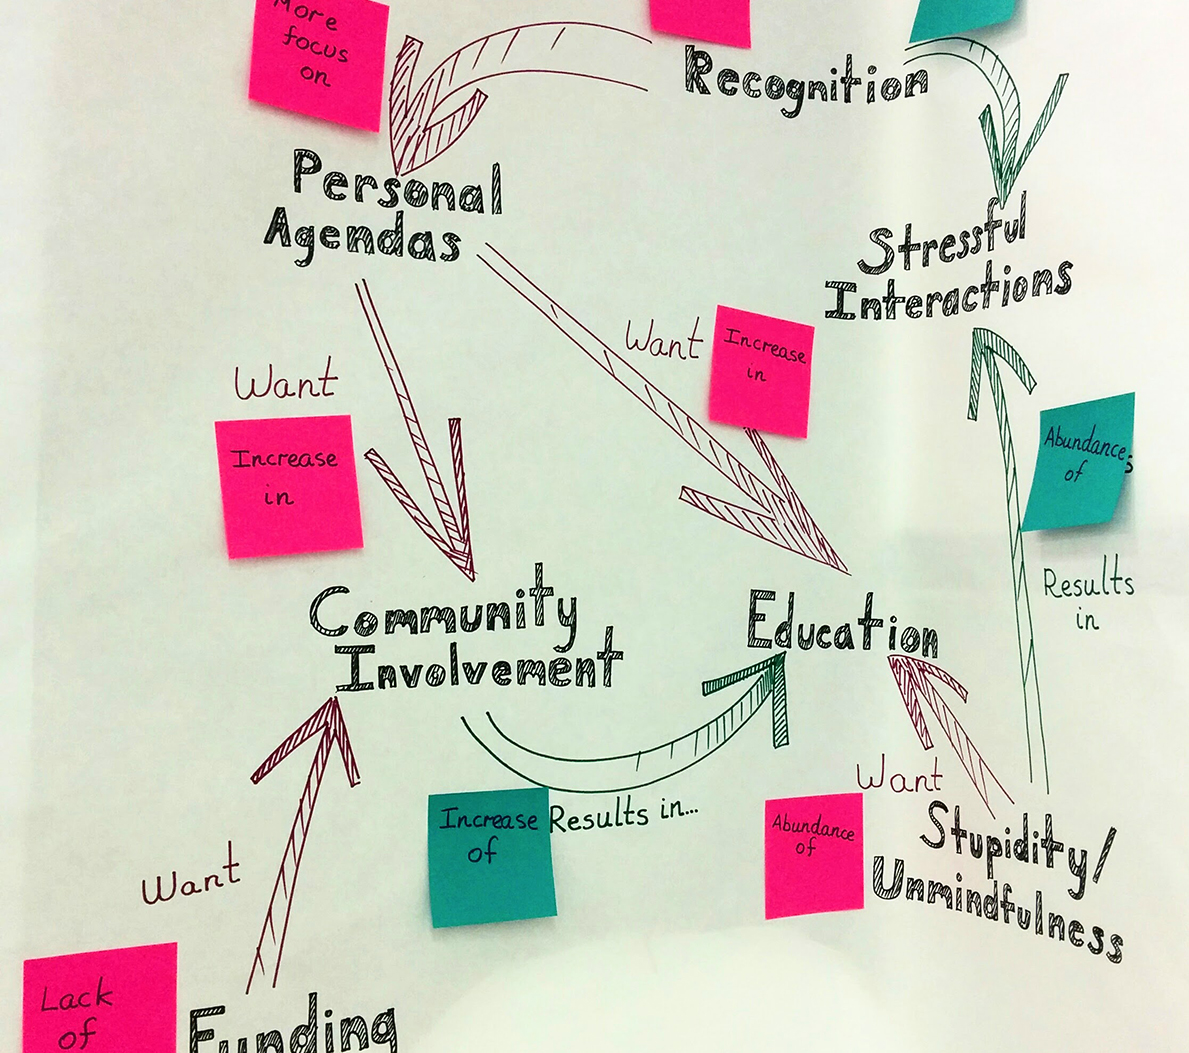 More
focus
on
Recognition
Personal
Agendas
Stressful
Interactions
Want
Increase
in
Want
Increase
in
Abundance
of
Results
in
Community
Involvement
Education
Want
Increase
of
Results in...
Want
Abundance
of
Stupidity/
Unmindfulness
Lack
of
Funding